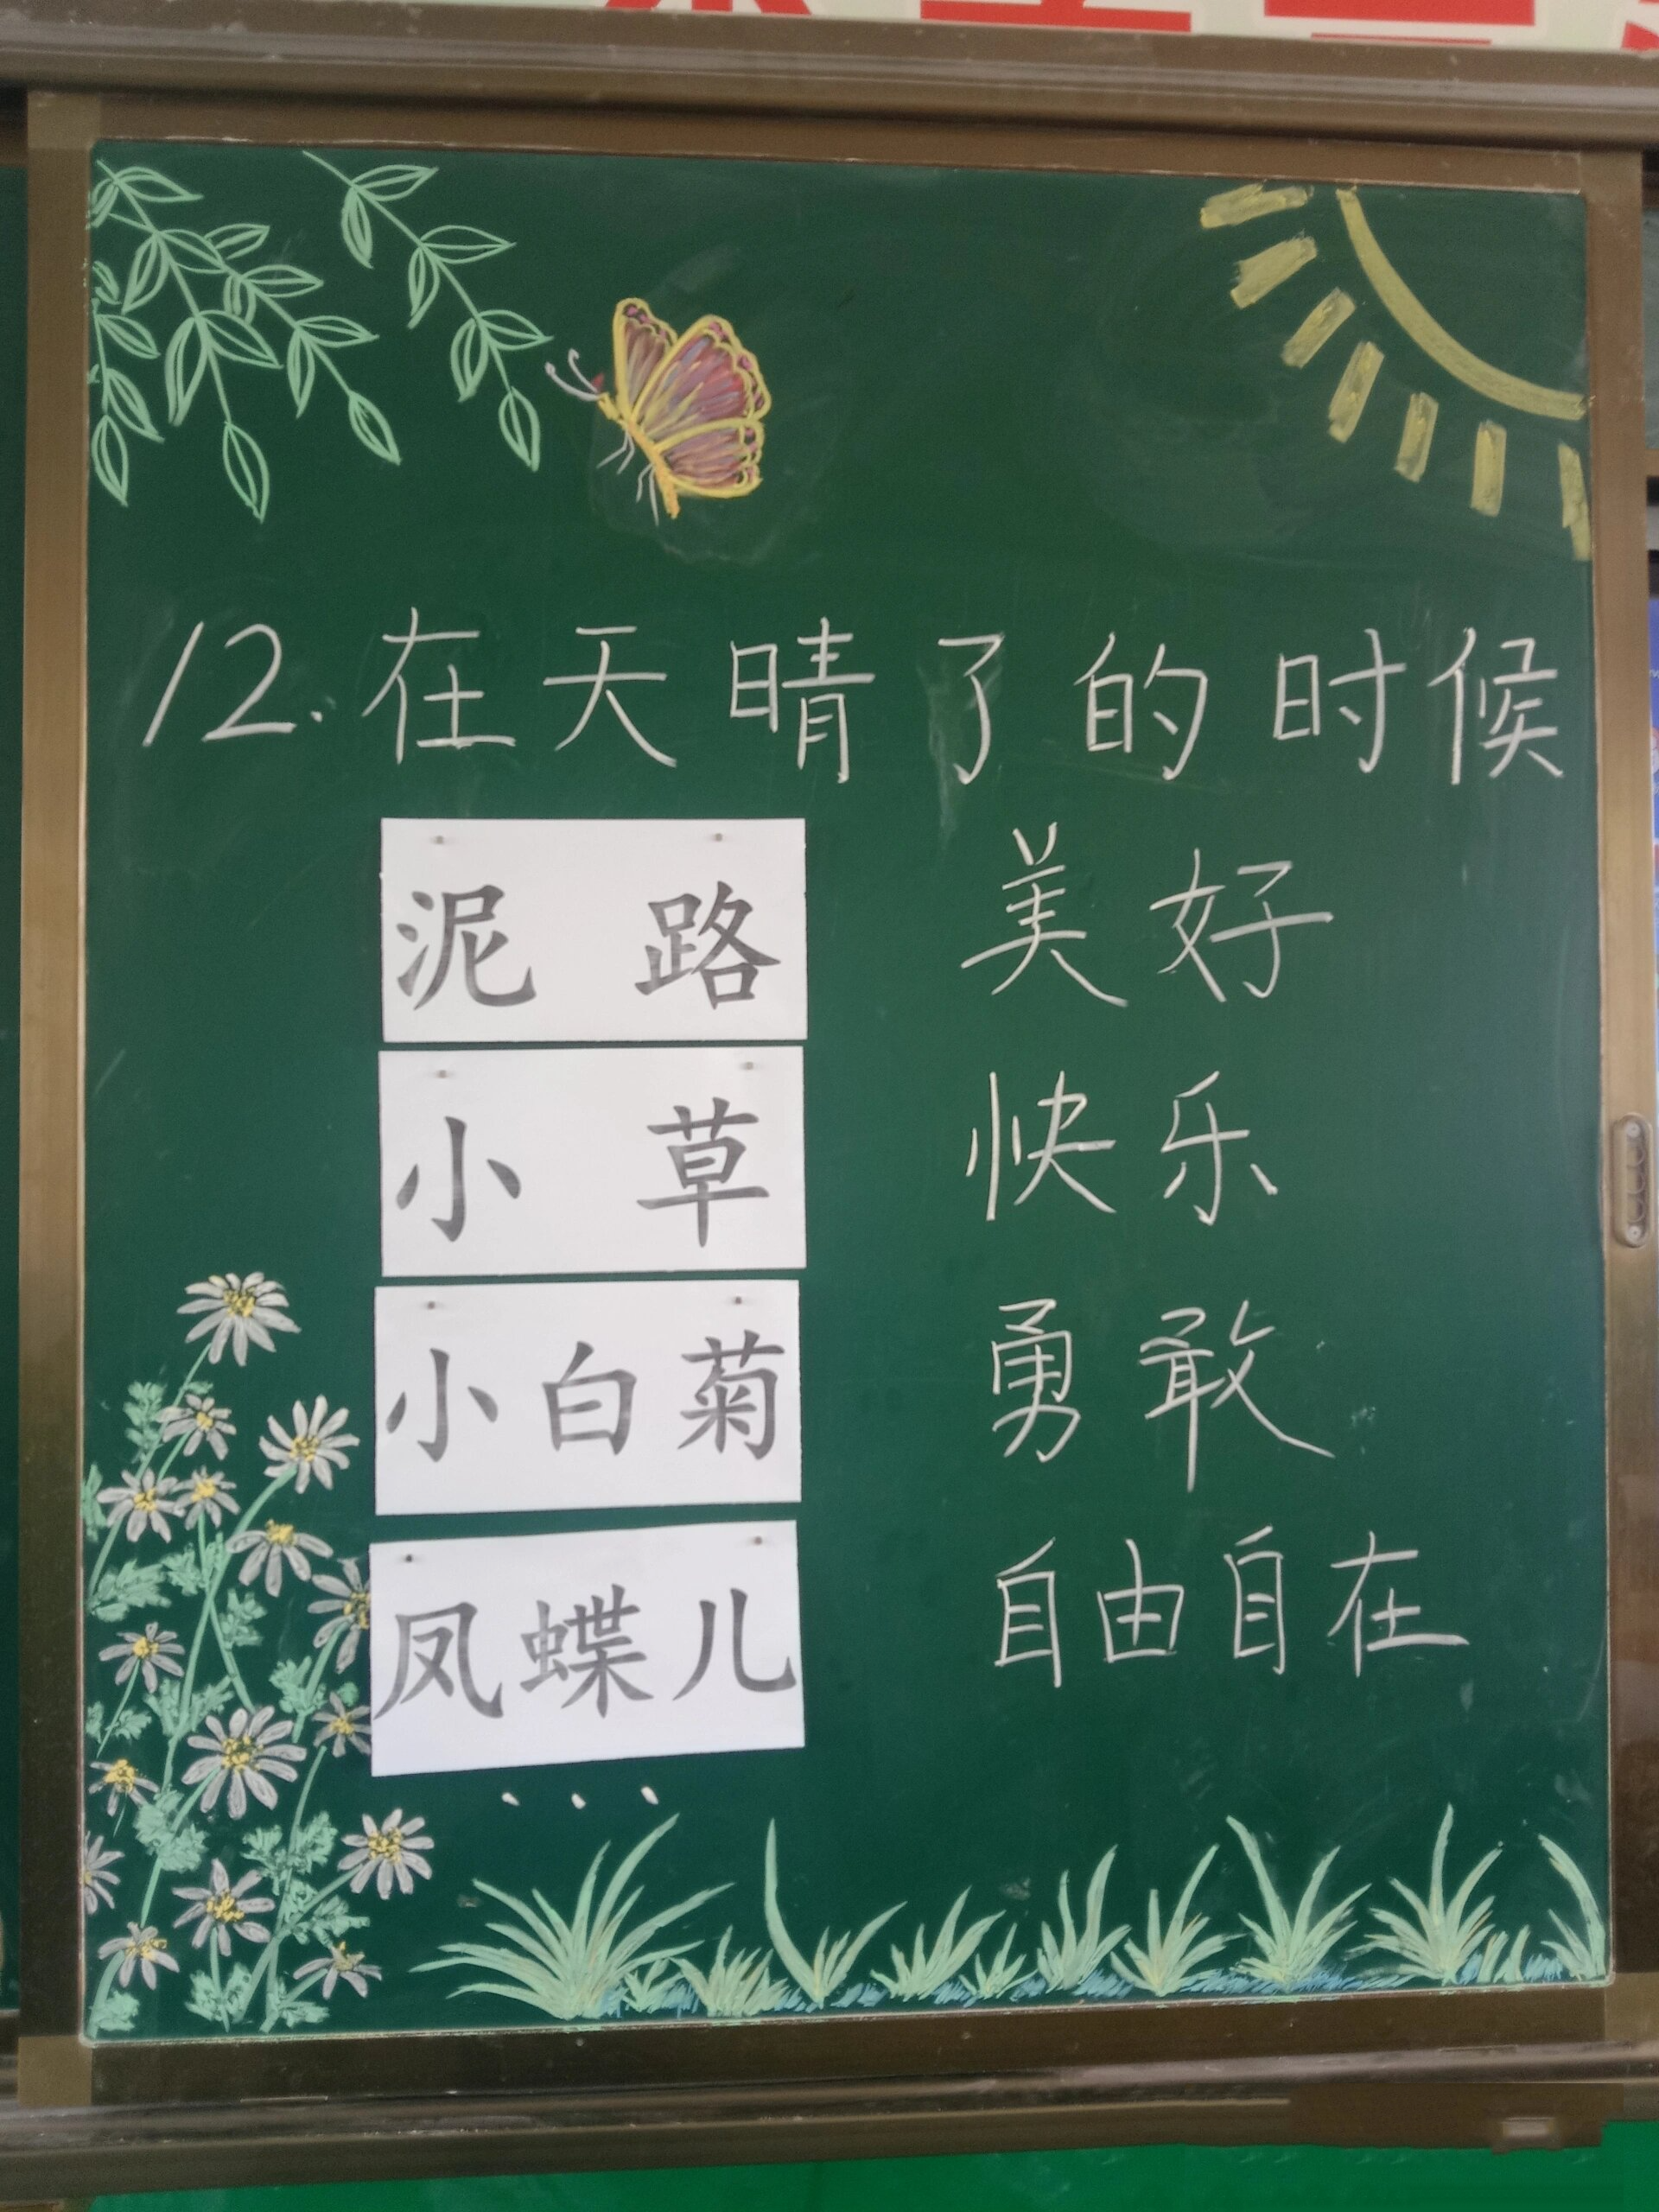 12.在天晴了的时候
泥路 美好
小草 快乐
小白菊 勇敢
凤蝶儿 自由自在
...